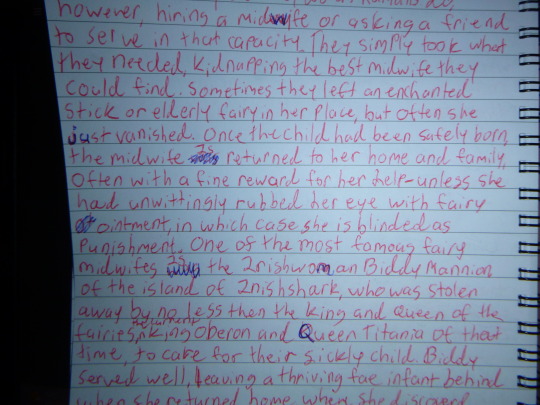 however, hiring a midwife or asking a friend
to serve in that capacity. They simply took what
they needed, kidnapping the best midwife they
could find. Sometimes they left an enchanted
stick or elderly fairy in her place, but often she
just vanished. Once the child had been safely born,
the midwife is returned to her home and family,
often with a fine reward for her help-unless she
had unwittingly rubbed her eye with fairy
ointment, in which case she is blinded as
punishment. One of the most famous fairy
midwifes is the Irishwoman Biddy Mannion
of the island of Inishshark, who was stolen
away by no less then the king and queen of the
fairies, king Oberon and Queen Titania of that
time, to care for their sickly child. Biddy
served well, leaving a thriving fae infant behind
when she returned home, where she